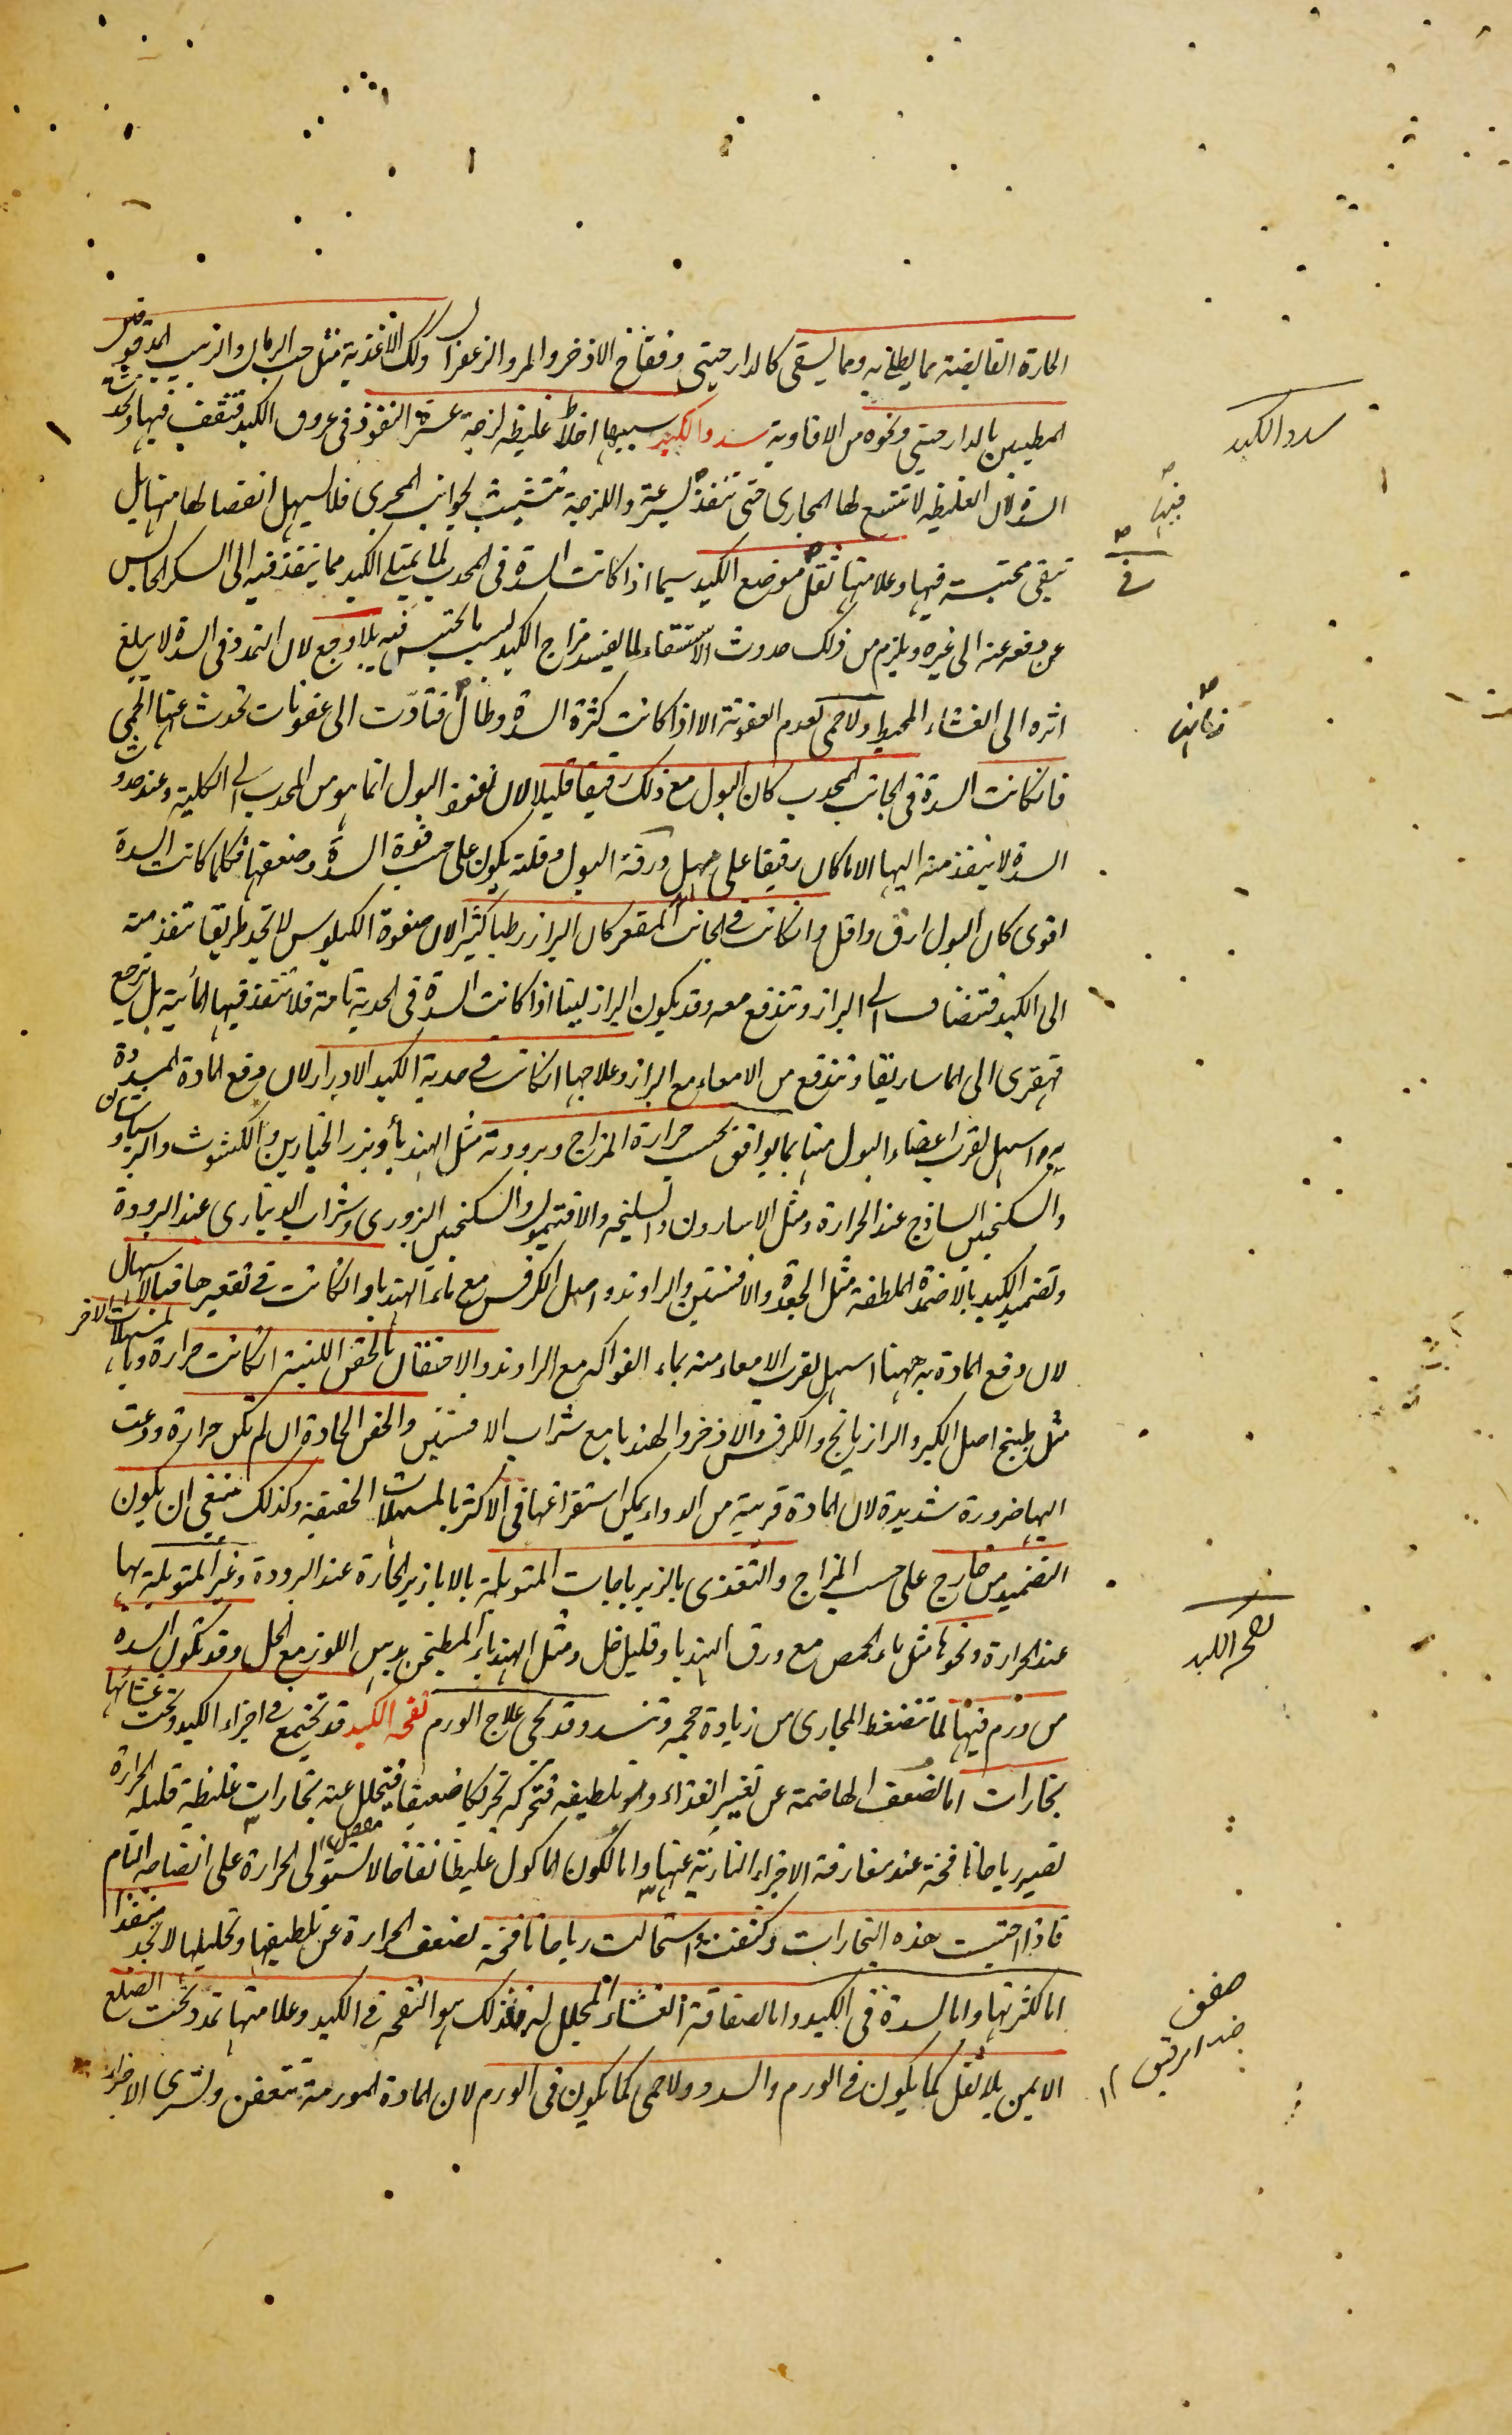 الحارة القابضة مما يطلى به ومما يسقى كالدارصينى وفقاح الاذخر والمر والزعفران وكذلك الاغذية مثل حب الرمان والزبيب المدقوق
المطيبين بالدارصينى ونحوه من الافاوية سدد الكبد سببها اخلاط غليظة لزجة عسرة النفوذ فى عروق الكبد فتقف فيها وتحدث
السدة لان الغليظة لا تتسع لها المجارى حتى تنفذ بسرعة واللزجة تتشبث بجوانب المجرى فلا يسهل انفصالها منها بل
تبقى محتبسة فيها وعلامتها ثقل موضع الكبد سيما اذا كانت السدة فى المحدب لما يمتلى الكبد مما ينفذ فيه الى السد الحابس
عن دفعه عنه الى غيره ويلزم من ذلك حدوث الاستسقاء لما يفسد مزاج الكبد بسبب ما يحتبس فيه بلا وجع لان التمدد فى السدة لا يبلغ
اثره الى الغشاء المحيط ولا حمى لعدم العفونة الا اذا كانت كثرة السدة وطال فتأدّت الى عفونات تحدث عنها الحمى
فان كانت السدة فى الجانب المحدب كان البول مع ذلك رقيقا قليلا لان نفوذ البول انما هو من المحدب الى الكلية وعند حدوث
السدة لا ينفذ منه اليها الا ما كان رقيقا على مهل ورقة البول وقلته يكون على حسب قوة السدة وضعفها فكلما كانت السدة
اقوى كان البول ارق واقل وان كانت فى الجانب المقعر كان البراز رطبا كثيرا لان صفوة الكيلوس لا تجد طريقا تنفذ منه
الى الكبد فتضاف الى البراز وتندفع معه وقد يكون البراز لينا اذا كانت السدة فى الحدبة تامة فلا تنفذ فيها المائية بل ترجع
قهقرى الى الماساريقا وتندفع من الامعاء مع البراز وعلاجها ان كانت فى حدبة الكبد الادرار لان دفع المادة المسددة
به اسهل لقرب اعضاء البول منها بما يوافق بحسب حرارة المزاج وبرودته مثل الهندبأ وبزر الخيارين والكشوث والبرسياوشان
والسكنجبين الساذج عند الحرارة ومثل الاسارون والسليخه والافتيمون والسكنجبين البزورى وشراب الدينارى عند البرودة
وتضميد الكبد بالاضمدة الملطفة مثل الجعدة والافسنتين والراوند واصل الكرفس مع ماء الهندبا وان كانت فى تقعيرها فبالاسهال
لان دفع المادة به ههنا اسهل لقرب الامعاء منه بماء الفواكه مع الراوند والاحتقان بالحقن اللينة ان كانت حرارة وبالمسهلات الاخر
مثل طبيخ اصل الكبر والرازيانج والكرفس والاذخر والهندبا مع شراب الافسنتين والحقن الحادة ان لم تكن حرارة ودعت
اليها ضرورة شديدة لان المادة قريبة من الدواء يمكن استفراغها فى الاكثر بالمسهلات الخفيفة وكذلك ينبغى ان يكون
التضميد من خارج على حسب المزاج والتغذى بالزيرباجات المتوبلة بالابازير الحارة عند البرودة وغير المتوبلة بها
عند الحرارة ونحوها مثل ماء الحمص مع ورق الهندبا وقليل خل ومثل الهندباء المطبخن بدهن اللوز مع الخل وقد تكون السدة
من ورم فيها لما تنضغط المجارى من زيادة حجمه وتنسد وقد يجى علاج الورم نفخه الكبد قد تجتمع فى اجزاء الكبد وتحت غشائها
بخارات اما لضعف الهاضمة عن تغيير الغذاء وتلطيفه فتحركه تحريكا ضعيفا فيتحلل عنه بخارات غليظة قليلة الحرارة
تصير رياحا نافخة عند مفارقة الاجزاء النارية عنها واما لكون الماكول غليظا نفاخا لا تستولى الحرارة على انضاجه التام
فاذا احتبست هذه البخارات وكثفت استحالت رياحا نافخة لضعف الحرارة عن تلطيفها وتحليلها لا تجد منفذا
اما لكثرتها واما لسدة فى الكبد واما لصفاقة الغشاء المجلل له فذلك هو النفخه فى الكبد وعلامتها تمدد تحت الضلع
الايمن بلا ثقل كما يكون فى الورم والسدد ولا حمى كما يكون فى الورم لان المادة المورمة تتعفن وتسرى الاجزاء
سدد الكبد
فيها
فى
نفخه الكبد
صفق
ضد الرقيق